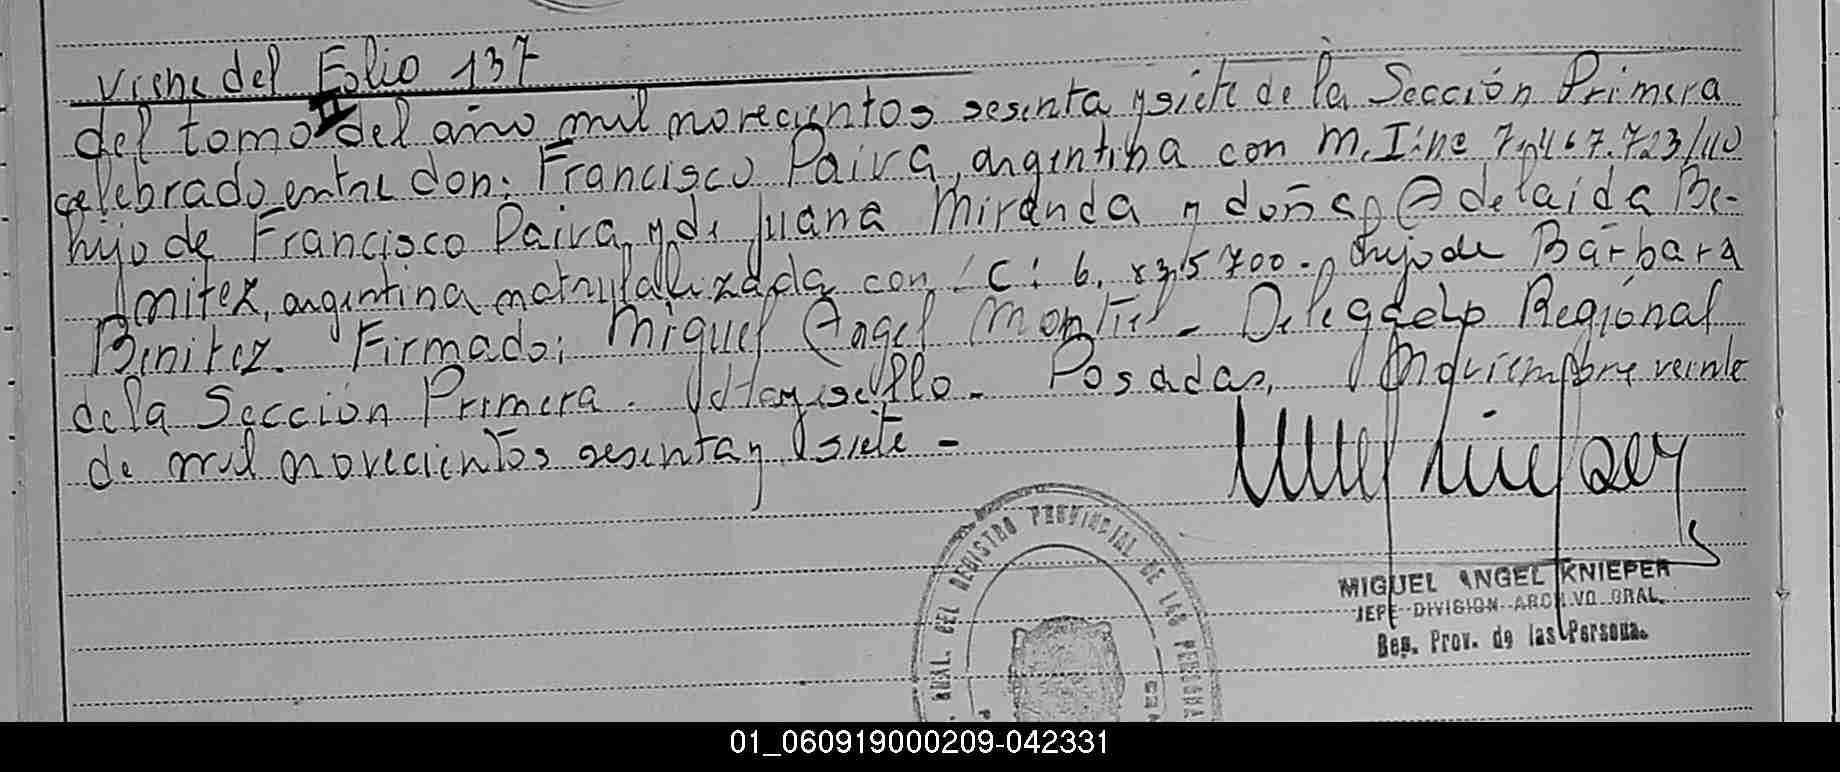 Viene del Folio 137
del tomo II del año mil novecientos sesenta y siete de la Sección Primera
celebrado entre don: Francisco Paiva, argentina con M.I: nº 7.467.723/40
hijo de Francisco Paiva y de Juana Miranda y doña Adelaida Be-
nitez, argentina naturalizada con C: 6. 835700 - hijo de Bárbara
Benitez. Firmado: Miguel Angel Montiel - Delegado Regional
de la Sección Primera. Hay sello - Posadas, Noviembre veinte
de mil novecientos sesenta y siete -
MIGUEL ANGEL KNIEPER
JEFE DIVISION ARCHIVO GRAL.
Reg. Prov. de las Persona.
GRAL. DEL REGISTRO PROVINCIAL DE LAS PERSONA
01_060919000209-042331